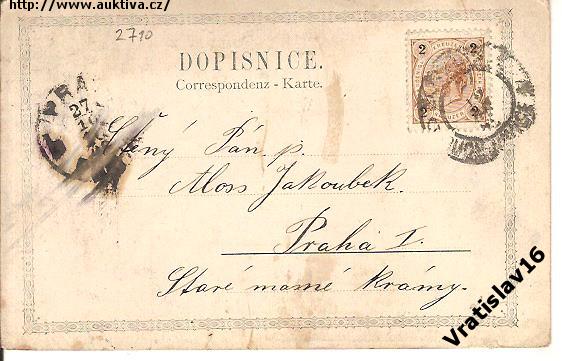 http://www.auktiva.cz/
2710
DOPISNICE.
Correspondenz - Karte.
2 KREUZER 2
2 2
PRA
27
Ctěný Pán p.
Alois Jakoubek.
Praha I.
Staré mamé krámy.
Vratislav16